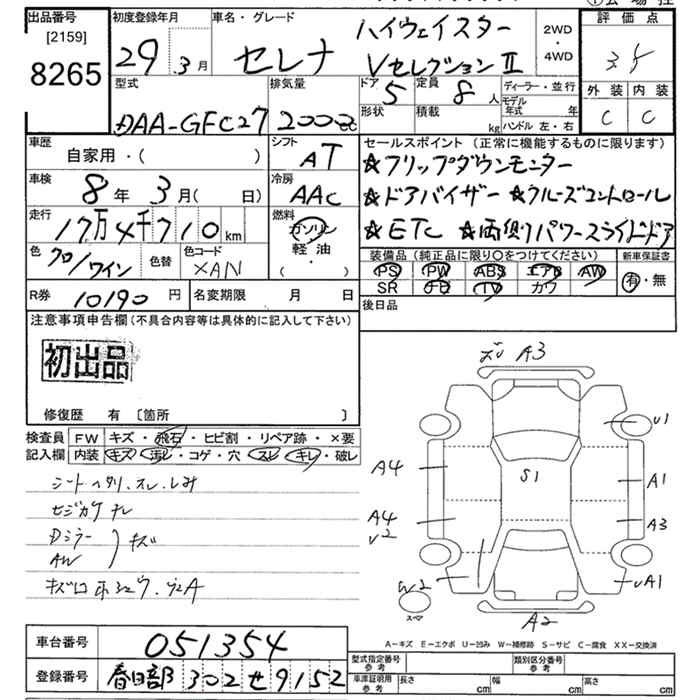 出品番号
[2159]
8265
初度登録年月
29 . 3 月
車名・グレード
セレナ
ハイウェイスター
Vセレクション Ⅱ
2WD
・
4WD
評価点
3.5
外装 内装
C C
型式
DAA-GFC27
排気量
2000cc
ドア 5
形状
定員 8 人
積載 kg
ディーラー・並行
モデル年式 年
ハンドル 左・右
車歴
自家用・( )
シフト
AT
車検
8年 3月( 日)
冷房
AAC
走行
17万4千710 km
燃料
ガソリン
軽油
・
( )
色
クロ/ワイン
色替
色コード
XAN
R券 10190 円
名変期限 月 日
セールスポイント(正常に機能するものに限ります)
★フリップダウンモニター
★ドアバイザー ★クルーズコントロール
★ETC ★両側パワースライドドア
装備品(純正品に限り○をつけてください)
PS PW ABS エアB AW
SR TV カワ
新車保証書
有・無
後日品
注意事項申告欄(不具合内容等は具体的に記入して下さい)
初出品
修復歴 有 〔箇所 〕
検査員 FW キズ・飛石・ヒビ割・リペア跡・×要
記入欄 内装 キズ・汚レ・コゲ・穴・スレ・キレ・破レ
シートヘタリ.スレ.しみ
Dミラー
AW
キズ
A3
U1
A4
S1
A1
A4
A3
U2
W2
UA1
スペア
A2
A−キズ E−エクボ U−凹み W−補修跡 S−サビ C−腐食 XX−交換済
車台番号
051354
登録番号
春日部 302 せ 9152
型式指定番号
参考
類別区分番号
参考
車庫証明用
参考
長さ cm
幅 cm
高さ cm